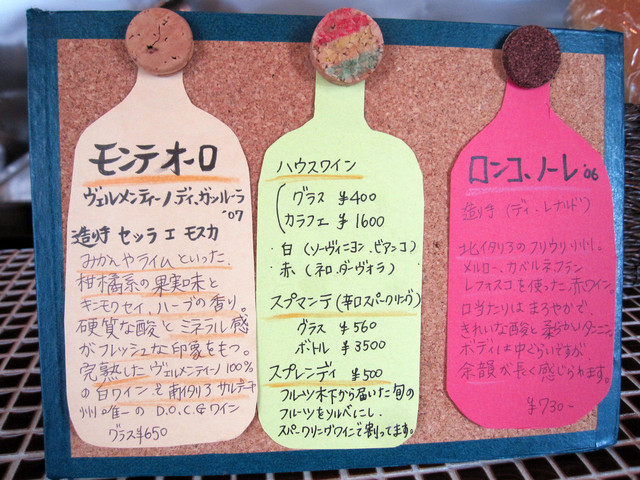 モンテオーロ
ヴェルメンティーノ ディ.ガッルーラ
'07
造り手 セッラ エ モスカ
みかんやライムといった
柑橘系の果実味と
キンモクセイ、ハーブの香り。
硬質な酸とミネラル感
がフレッシュな印象をもつ。
完熟したヴェルメンティーノ100%
の白ワイン。南イタリア サルデーニャ
州唯一の D.O.C.G ワイン
グラス¥650
ハウスワイン
グラス ¥400
カラフェ ¥1600
・白 (ソーヴィニヨン.ビアンコ)
・赤 (ネロ.ダーヴォラ)
スプマンテ(辛口スパークリング)
グラス ¥560
ボトル ¥3500
スプレンディ ¥500
フルーツ木下から届いた旬の
フルーツをソルベにし、
スパークリングワインで割ってます。
ロンコ.ノーレ '06
造り手 (ディ.レナルド)
北イタリアのフリウリ州。
メルロー、カベルネ.フラン
レフォスコを使った.赤ワイン。
口当たりはまろやかで
きれいな酸と柔らかいタンニン。
ボディは中ぐらいですが
余韻が長く感じられます。
¥730-